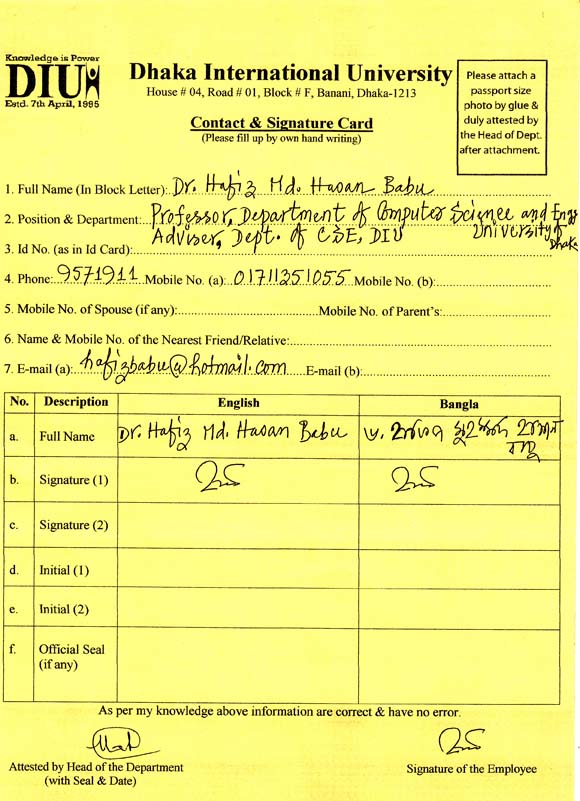 Knowledge is Power
DIU
Estd. 7th April, 1995
Dhaka International University
House # 04, Road # 01, Block # F, Banani, Dhaka-1213
Contact & Signature Card
(Please fill up by own hand writing)
Please attach a
passport size
photo by glue &
duly attested by
the Head of Dept.
after attachment.
1. Full Name (In Block Letter): Dr. Hafiz Md. Hasan Babu
2. Position & Department: Professor, Department of Computer Science and Engg
Adviser, Dept. of CSE, DIU University of Dhaka
3. Id No. (as in Id Card):
4. Phone: 9571911 Mobile No. (a): 01711351055 Mobile No. (b):
5. Mobile No. of Spouse (if any): Mobile No. of Parent's:
6. Name & Mobile No. of the Nearest Friend/Relative:
7. E-mail (a): hafizbabu@hotmail.com E-mail (b):
No. Description English Bangla
a. Full Name Dr. Hafiz Md. Hasan Babu ড. হাফিজ মুঃ হাসান
বাবু
b. Signature (1)
c. Signature (2)
d. Initial (1)
e. Initial (2)
f. Official Seal
(if any)
As per my knowledge above information are correct & have no error.
Attested by Head of the Department
(with Seal & Date)
Signature of the Employee